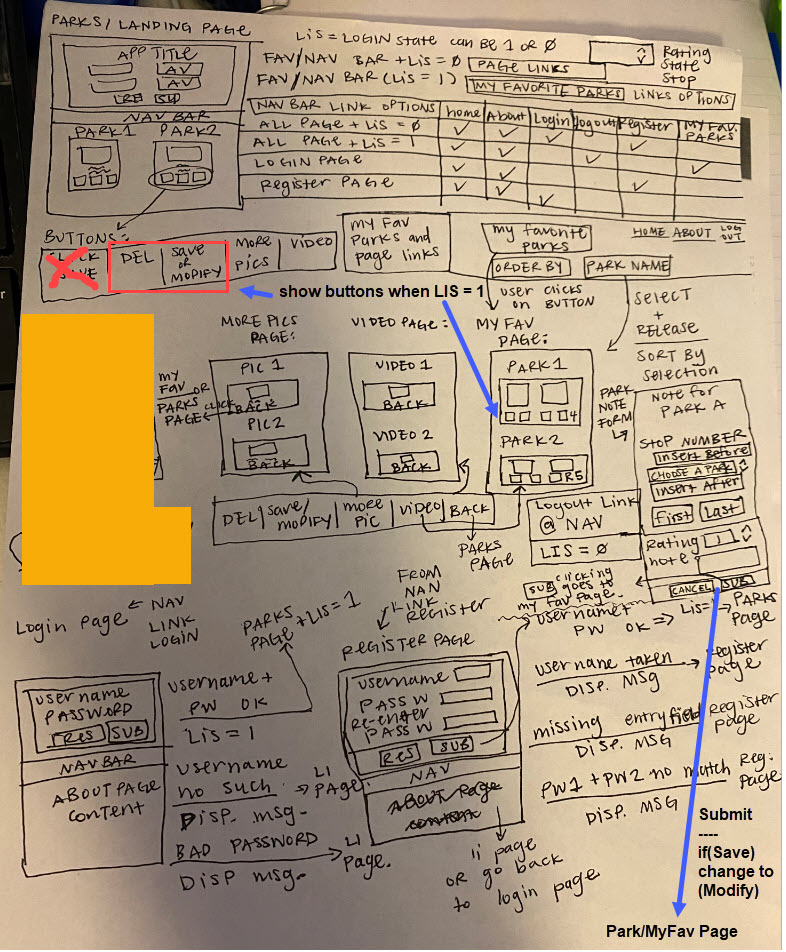 PARKS/LANDING PAGE
LiS = LOGIN State can be 1 or 0
APP TITLE
AV
AV
RES SUB
NAV BAR
PARK1 PARK2
FAV/NAV BAR + LiS = 0 PAGE LINKS
FAV/NAV BAR (LiS = 1) MY FAVORITE PARKS LINKS OPTIONS
Rating
State
Stop
NAV BAR LINK OPTIONS home About Login logout Register MY FAV. PARKS
ALL PAGE + LiS = 0 ✓ ✓ ✓ ✓
ALL PAGE + LiS = 1 ✓ ✓ ✓ ✓
LOGIN PAGE ✓ ✓ ✓
Register PAGE ✓ ✓ ✓
BUTTONS:
DEL
save
or
MODIFY
more
pics
video
my Fav
Parks and
page links
my favorite
parks
HOME ABOUT LOG
OUT
ORDER BY PARK NAME
show buttons when LIS = 1
user clicks
on BUTTON
SELECT
+
RELEASE
SORT BY
selection
MORE PICS
PAGE:
PIC 1
BACK
PIC2
BACK
my
FAV OR
PARKS
PAGE
CLICK
VIDEO PAGE:
VIDEO 1
BACK
VIDEO 2
BACK
MY FAV
PAGE:
PARK 1
4
PARK2
R5
PARK
NOTE
FORM
Note for
PARK A
STOP NUMBER
Insert Before
CHOOSE A PARK
Insert After
First Last
Rating 1
note
CANCEL SUB
DEL save/
modify more
pic video BACK
PARKS
PAGE
Logout Link
@ NAV
LIS = 0
SUB clicking
goes to
my Fav page.
Login page ← NAV
LINK
LOGIN
username
PASSWORD
RES SUB
NAV BAR
ABOUT PAGE
content
PARKS
PAGE + LiS = 1
username +
PW OK
LiS = 1
username
no such → LI
PAGE.
Disp. msg.
BAD PASSWORD → LI
Page.
Disp msg.
FROM
NAN
LINK
REGISTER
REGISTER PAGE
username
PASS W
Re-enter
PASS W
RES SUB
NAV
ABOUT Page
content
li page
OR go back
to login page
username +
PW OK => LiS=1 → PARKS
Page
username taken → Register
page
DISP. MSG
missing entry field Register
page
DISP. MSG
PW1 + PW2 no match Reg.
Page
DISP. MSG
Submit
----
if(Save)
change to
(Modify)
Park/MyFav Page